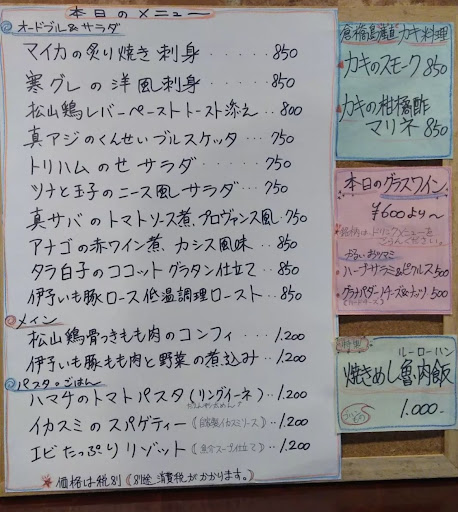 本日のメニュー
オードブル&サラダ
マイカの炙り焼き刺身・・・・・850
寒グレの洋風刺身・・・・・850
松山鶏レバーペーストトースト添え・・800
真アジのくんせいブルスケッタ・・・750
トリハムのせサラダ・・・・・750
ツナと玉子のニース風サラダ・・・750
真サバのトマトソース煮、プロヴァンス風・750
アナゴの赤ワイン煮 カシス風味・・850
タラ白子のココットグラタン仕立て・・850
伊予いも豚ロース低温調理ロースト・・850
メイン
松山鶏骨つきもも肉のコンフィ・・・1.200
伊予いも豚もも肉と野菜の煮込み・・1.200
パスタ・ごはん
ハマチのトマトパスタ(リングイーネ)・・1.200
イカスミのスパゲティー(自家製イカスミソース)・1.200
エビたっぷりリゾット(魚介スープ仕立て)・・1.200
価格は税別(別途 消費税がかかります。)
倉橋島産カキ料理
カキのスモーク 850
カキの柑橘酢
マリネ 850
本日のグラスワイン
¥600より〜
銘柄はドリンクメニューを
ごらんください。
かるいおつまミ
ハーブサラミ&ピクルス 500
グラナパダーノチーズ&ナッツ 500
ルーローハン
焼きめし魯肉飯
1.000-